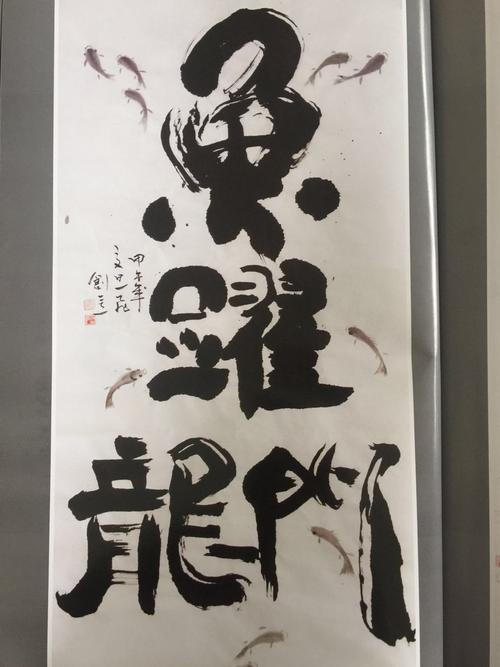 魚
躍
龍門
甲午年